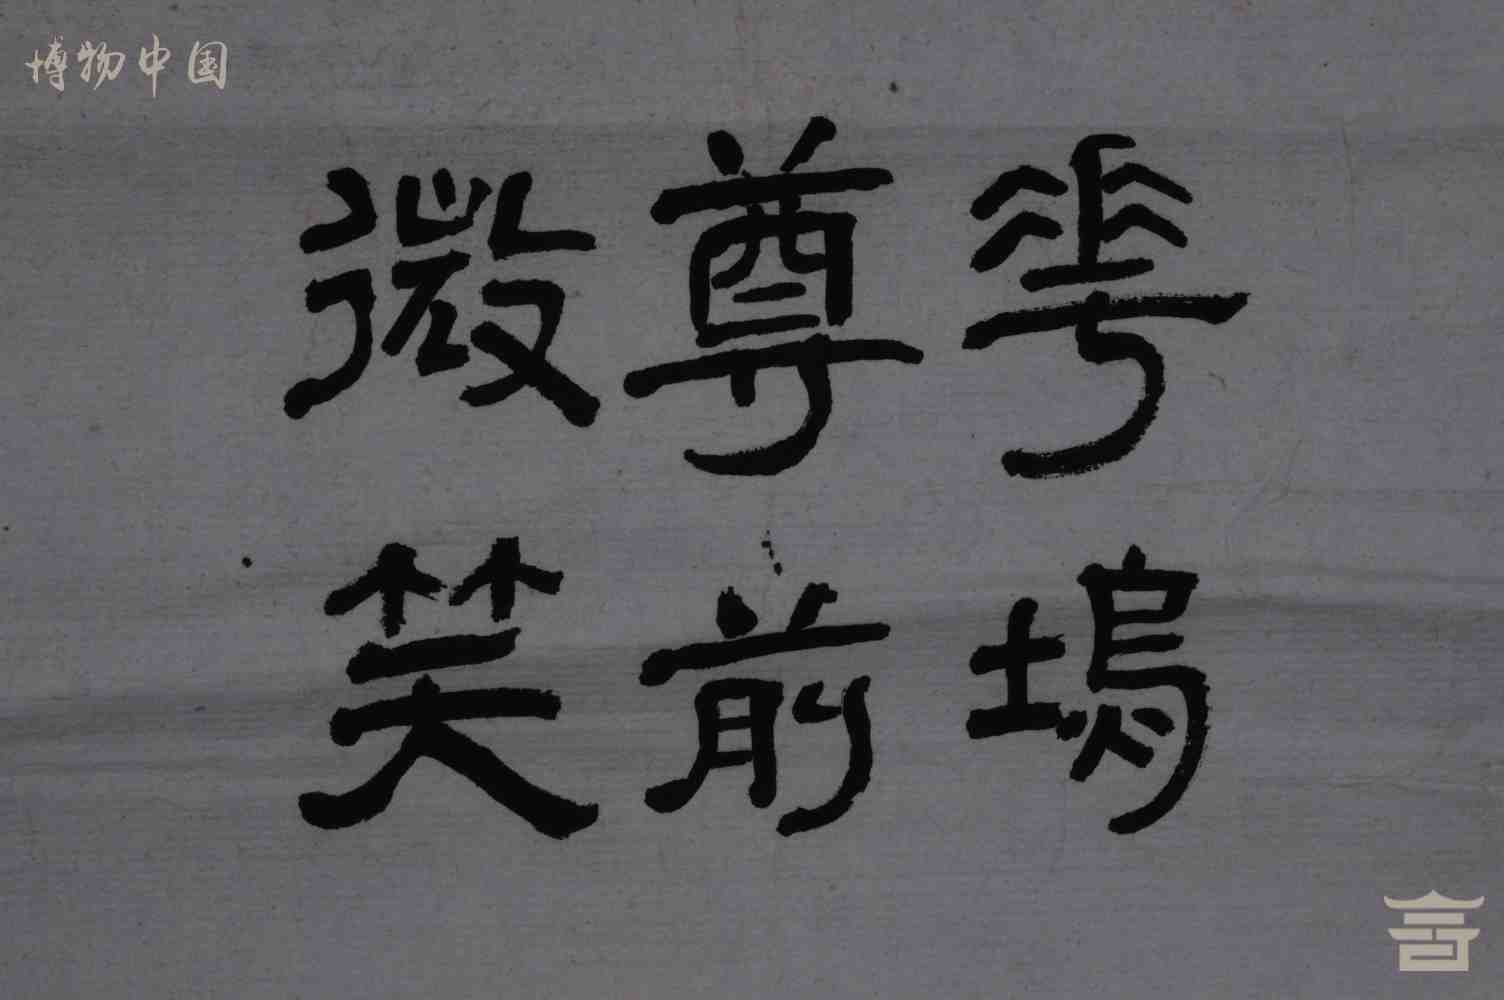 博物中国
華塢
尊前
微笑